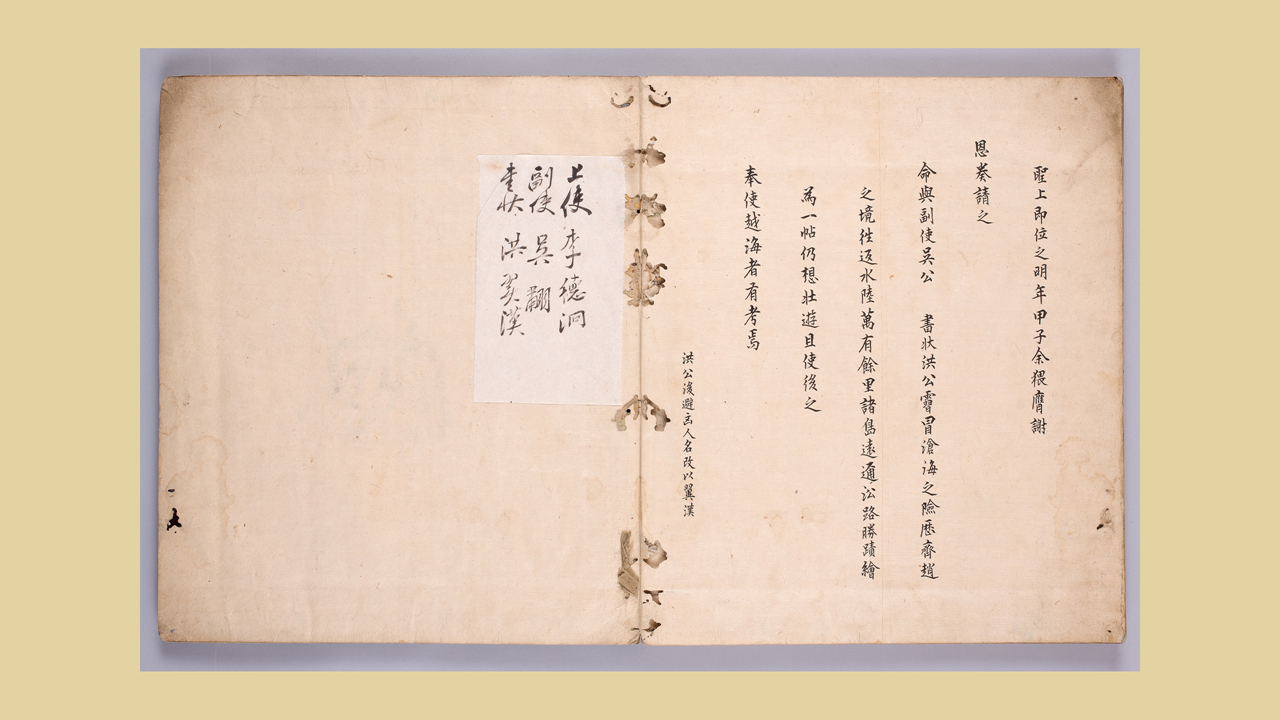 聖上即位之明年甲子余猥膺謝
恩奏請之
命與副使吳公 書狀洪公霫冒滄海之險歷齊趙
之境徃返水陸萬有餘里諸島遠邇沿路勝蹟繪
為一帖仍想壯遊且使後之
奉使越海者有考焉
洪公後避人名改以翼漢
上使 李德泂
副使 吳 翿
書狀 洪翼漢